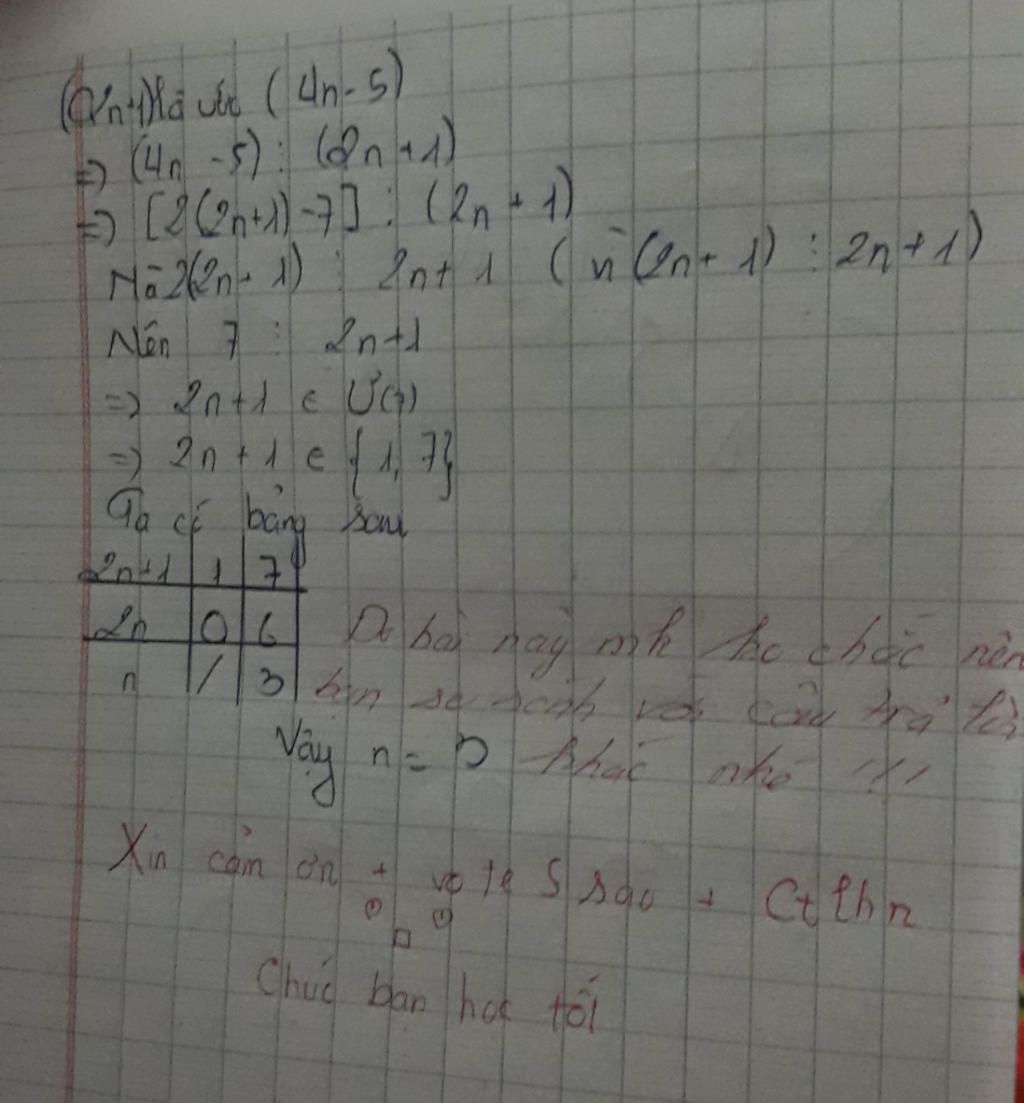 (2n+1) là ước (4n-5)
=> (4n -5) ⋮ (2n+1)
=> [2(2n+1)-7] ⋮ (2n+1)
Mà 2(2n+1) ⋮ 2n+1 ( vì (2n+1) ⋮ 2n+1)
Nên 7 ⋮ 2n+1
=> 2n+1 ∈ Ư(7)
=> 2n+1 ∈ {1, 7}
Ta có bảng sau
2n+1 | 1 | 7
2n | 0 | 6
n | / | 3
bài này mk ko chắc nên
bạn so sánh với câu trả lời
khác nhé !!!
Vậy n = 3
Xin cảm ơn + vote 5 sao + Ctlhn
Chúc bạn học tốt